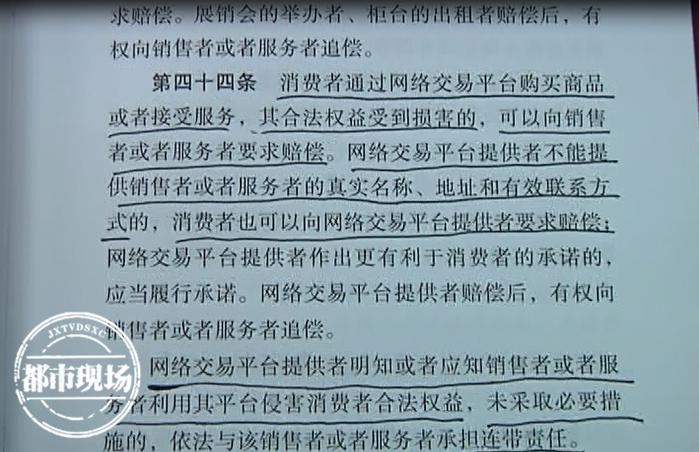 求赔偿。展销会的举办者、柜台的出租者赔偿后，有
权向销售者或者服务者追偿。
第四十四条 消费者通过网络交易平台购买商品
或者接受服务，其合法权益受到损害的，可以向销售
者或者服务者要求赔偿。网络交易平台提供者不能提
供销售者或者服务者的真实名称、地址和有效联系方
式的，消费者也可以向网络交易平台提供者要求赔偿；
网络交易平台提供者作出更有利于消费者的承诺的，
应当履行承诺。网络交易平台提供者赔偿后，有权向
销售者或者服务者追偿。
网络交易平台提供者明知或者应知销售者或者服
务者利用其平台侵害消费者合法权益，未采取必要措
施的，依法与该销售者或者服务者承担连带责任。
JXTVDSXC
都市现场